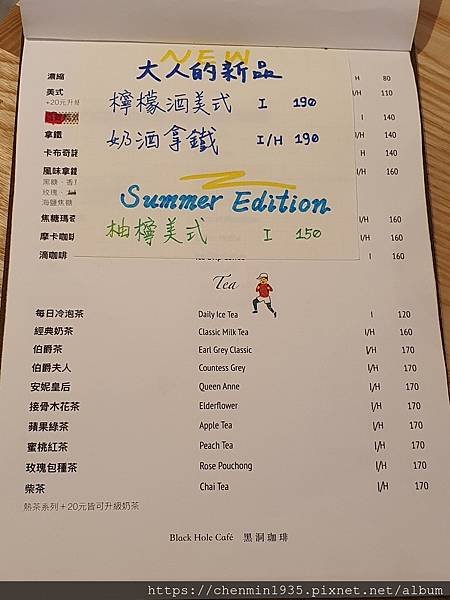 NEW
大人的新品
檸檬酒美式 I 190
奶酒拿鐵 I/H 190
Summer Edition
柚檸美式 I 150
濃縮 H 80
美式 I/H 110
+20元升級
I 140
拿鐵 I/H 140
卡布奇諾 I/H 140
風味拿鐵 I/H 160
黑糖、香
玫瑰、
海鹽焦糖
焦糖瑪奇 160
摩卡咖啡 160
滴咖啡 I 160
Tea
每日冷泡茶 Daily Ice Tea I 120
經典奶茶 Classic Milk Tea I/H 160
伯爵茶 Earl Grey Classic I/H 170
伯爵夫人 Countess Grey I/H 170
安妮皇后 Queen Anne I/H 170
接骨木花茶 Elderflower I/H 170
蘋果綠茶 Apple Tea I/H 170
蜜桃紅茶 Peach Tea I/H 170
玫瑰包種茶 Rose Pouchong I/H 170
柴茶 Chai Tea I/H 170
熱茶系列+20元皆可升級奶茶
Black Hole Café 黑洞咖啡
https://chenmin1935.pixnet.net/album